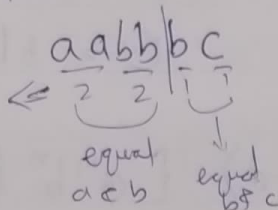 <= aabb|bc
2 2 1 1
equal equal
a & b b & c